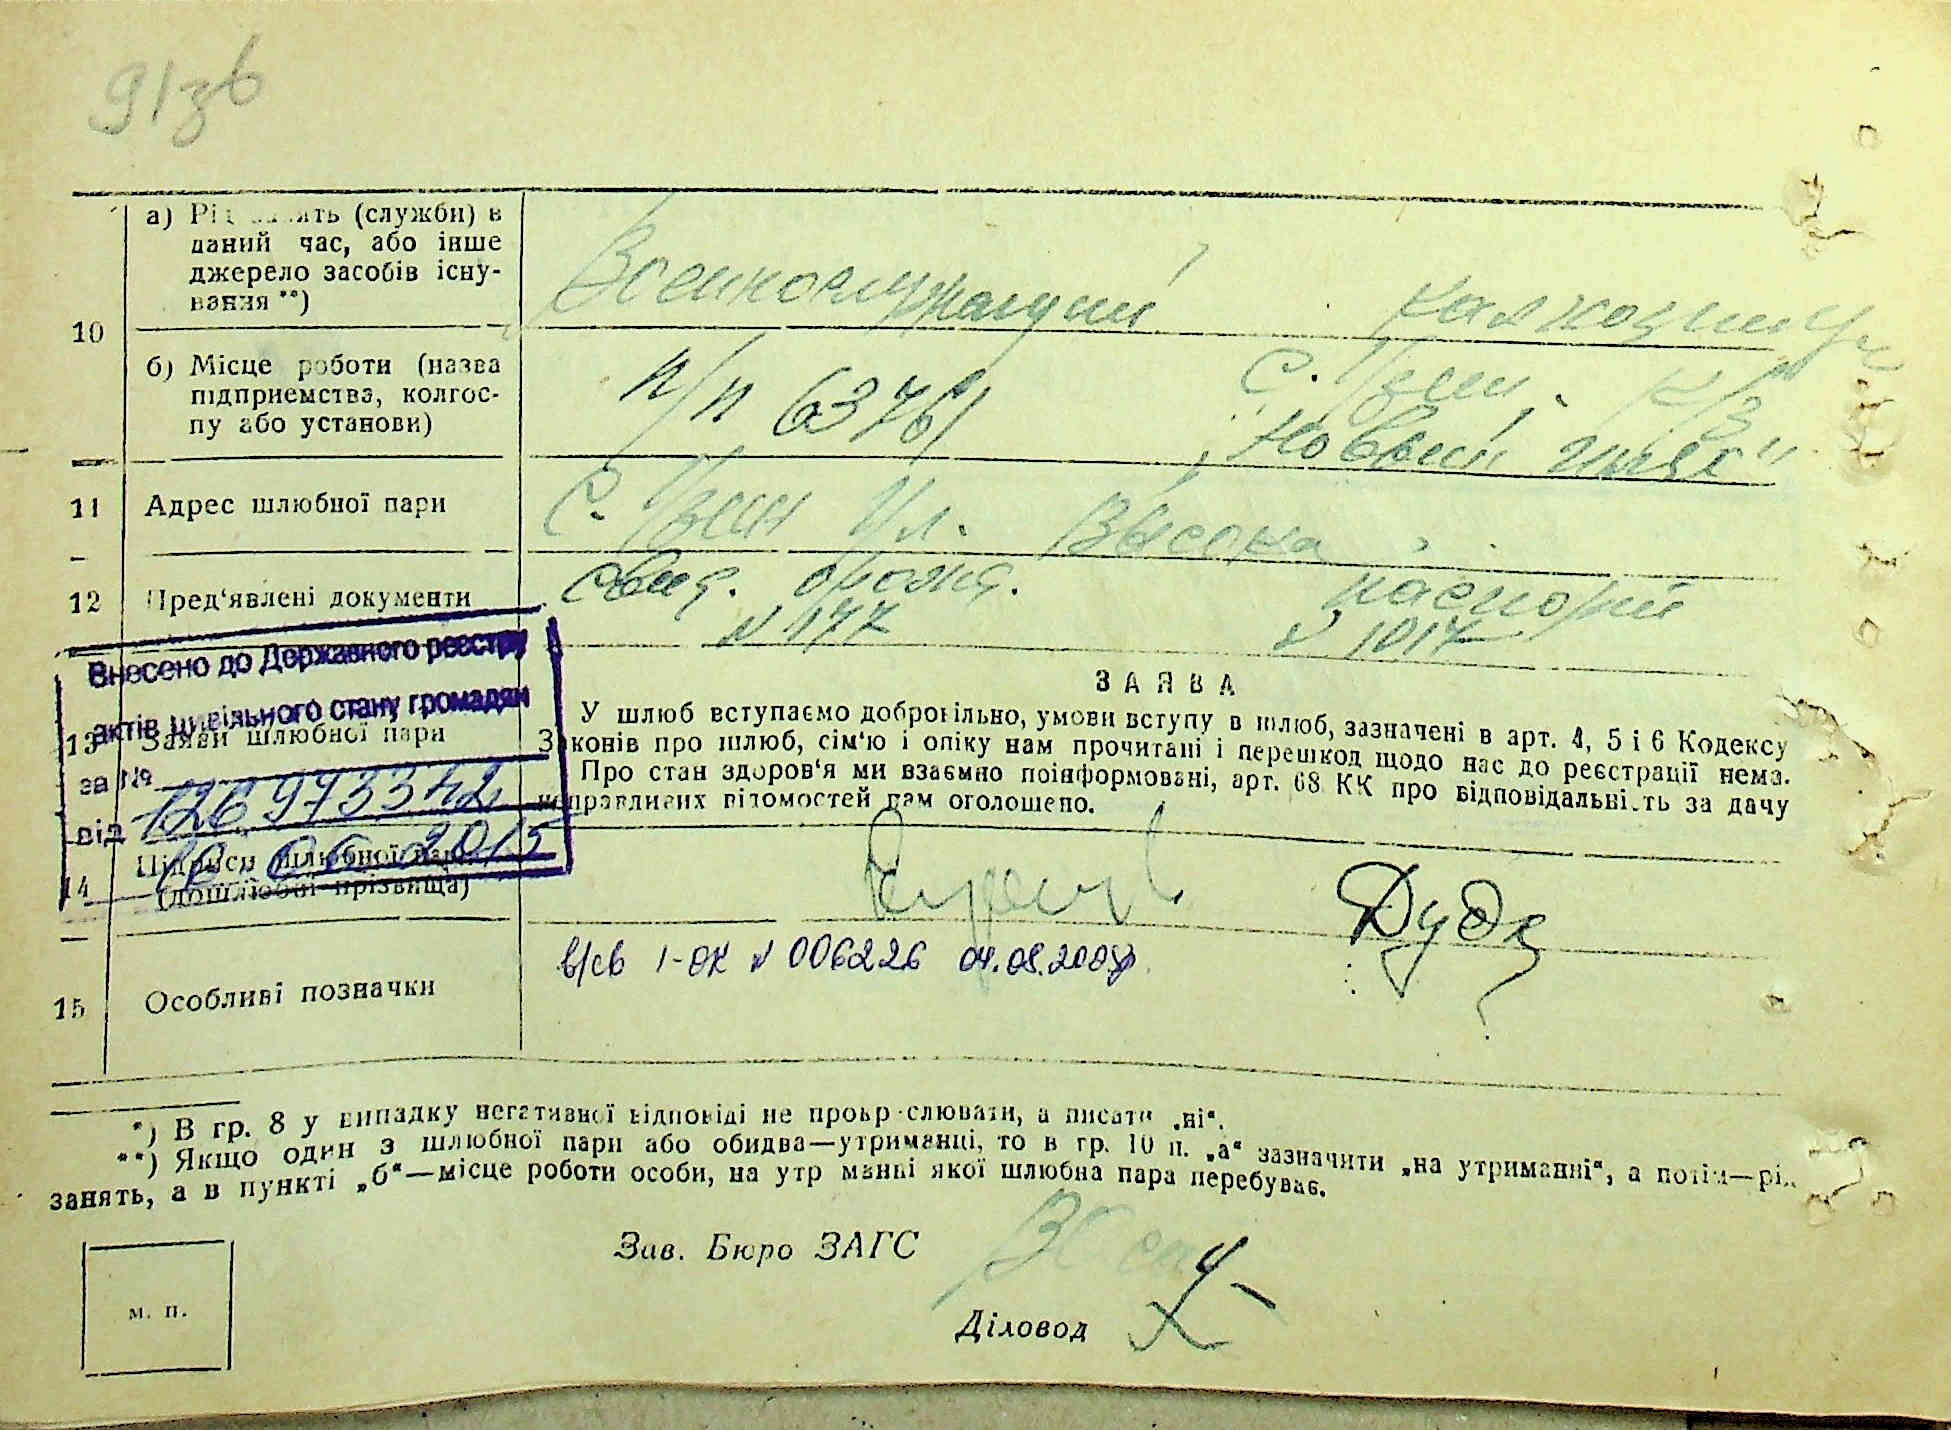 91зв
а) Рід занять (служби) в
даний час, або інше
джерело засобів існу-
вання **)
Военнослужащий
10
б) Місце роботи (назва
підприємства, колгос-
пу або установи)
п/п 63761
С. Узин. К/З
"Новый шлях"
11 Адрес шлюбної пари
С. Узин Ул. Висока
12 Пред'явлені документи
свид. брони. паспорт
N 177 N 1017
Внесено до Державного реєстру
актів цивільного стану громадян
за №
від
2015
13 Заяви шлюбної пари
ЗАЯВА
У шлюб вступаємо добровільно, умови вступу в шлюб, зазначені в арт. 4, 5 і 6 Кодексу
Законів про шлюб, сім'ю і опіку нам прочитані і перешкод щодо нас до реєстрації нема.
Про стан здоров'я ми взаємно поінформовані, арт. 68 КК про відповідальність за дачу
неправдивих відомостей нам оголошено.
14 Підписи шлюбної пари
(дошлюбні прізвища)
Дуда
15 Особливі позначки
в/св 1-ОК N 006226
*) В гр. 8 у випадку негативної відповіді не прокреслювати, а писати „ні“.
**) Якщо один з шлюбної пари або обидва—утриманці, то в гр. 10 п. „а“ зазначити „на утриманні“, а потім—рід
занять, а в пункті „б“—місце роботи особи, на утриманні якої шлюбна пара перебуває.
Зав. Бюро ЗАГС
Діловод
м. п.